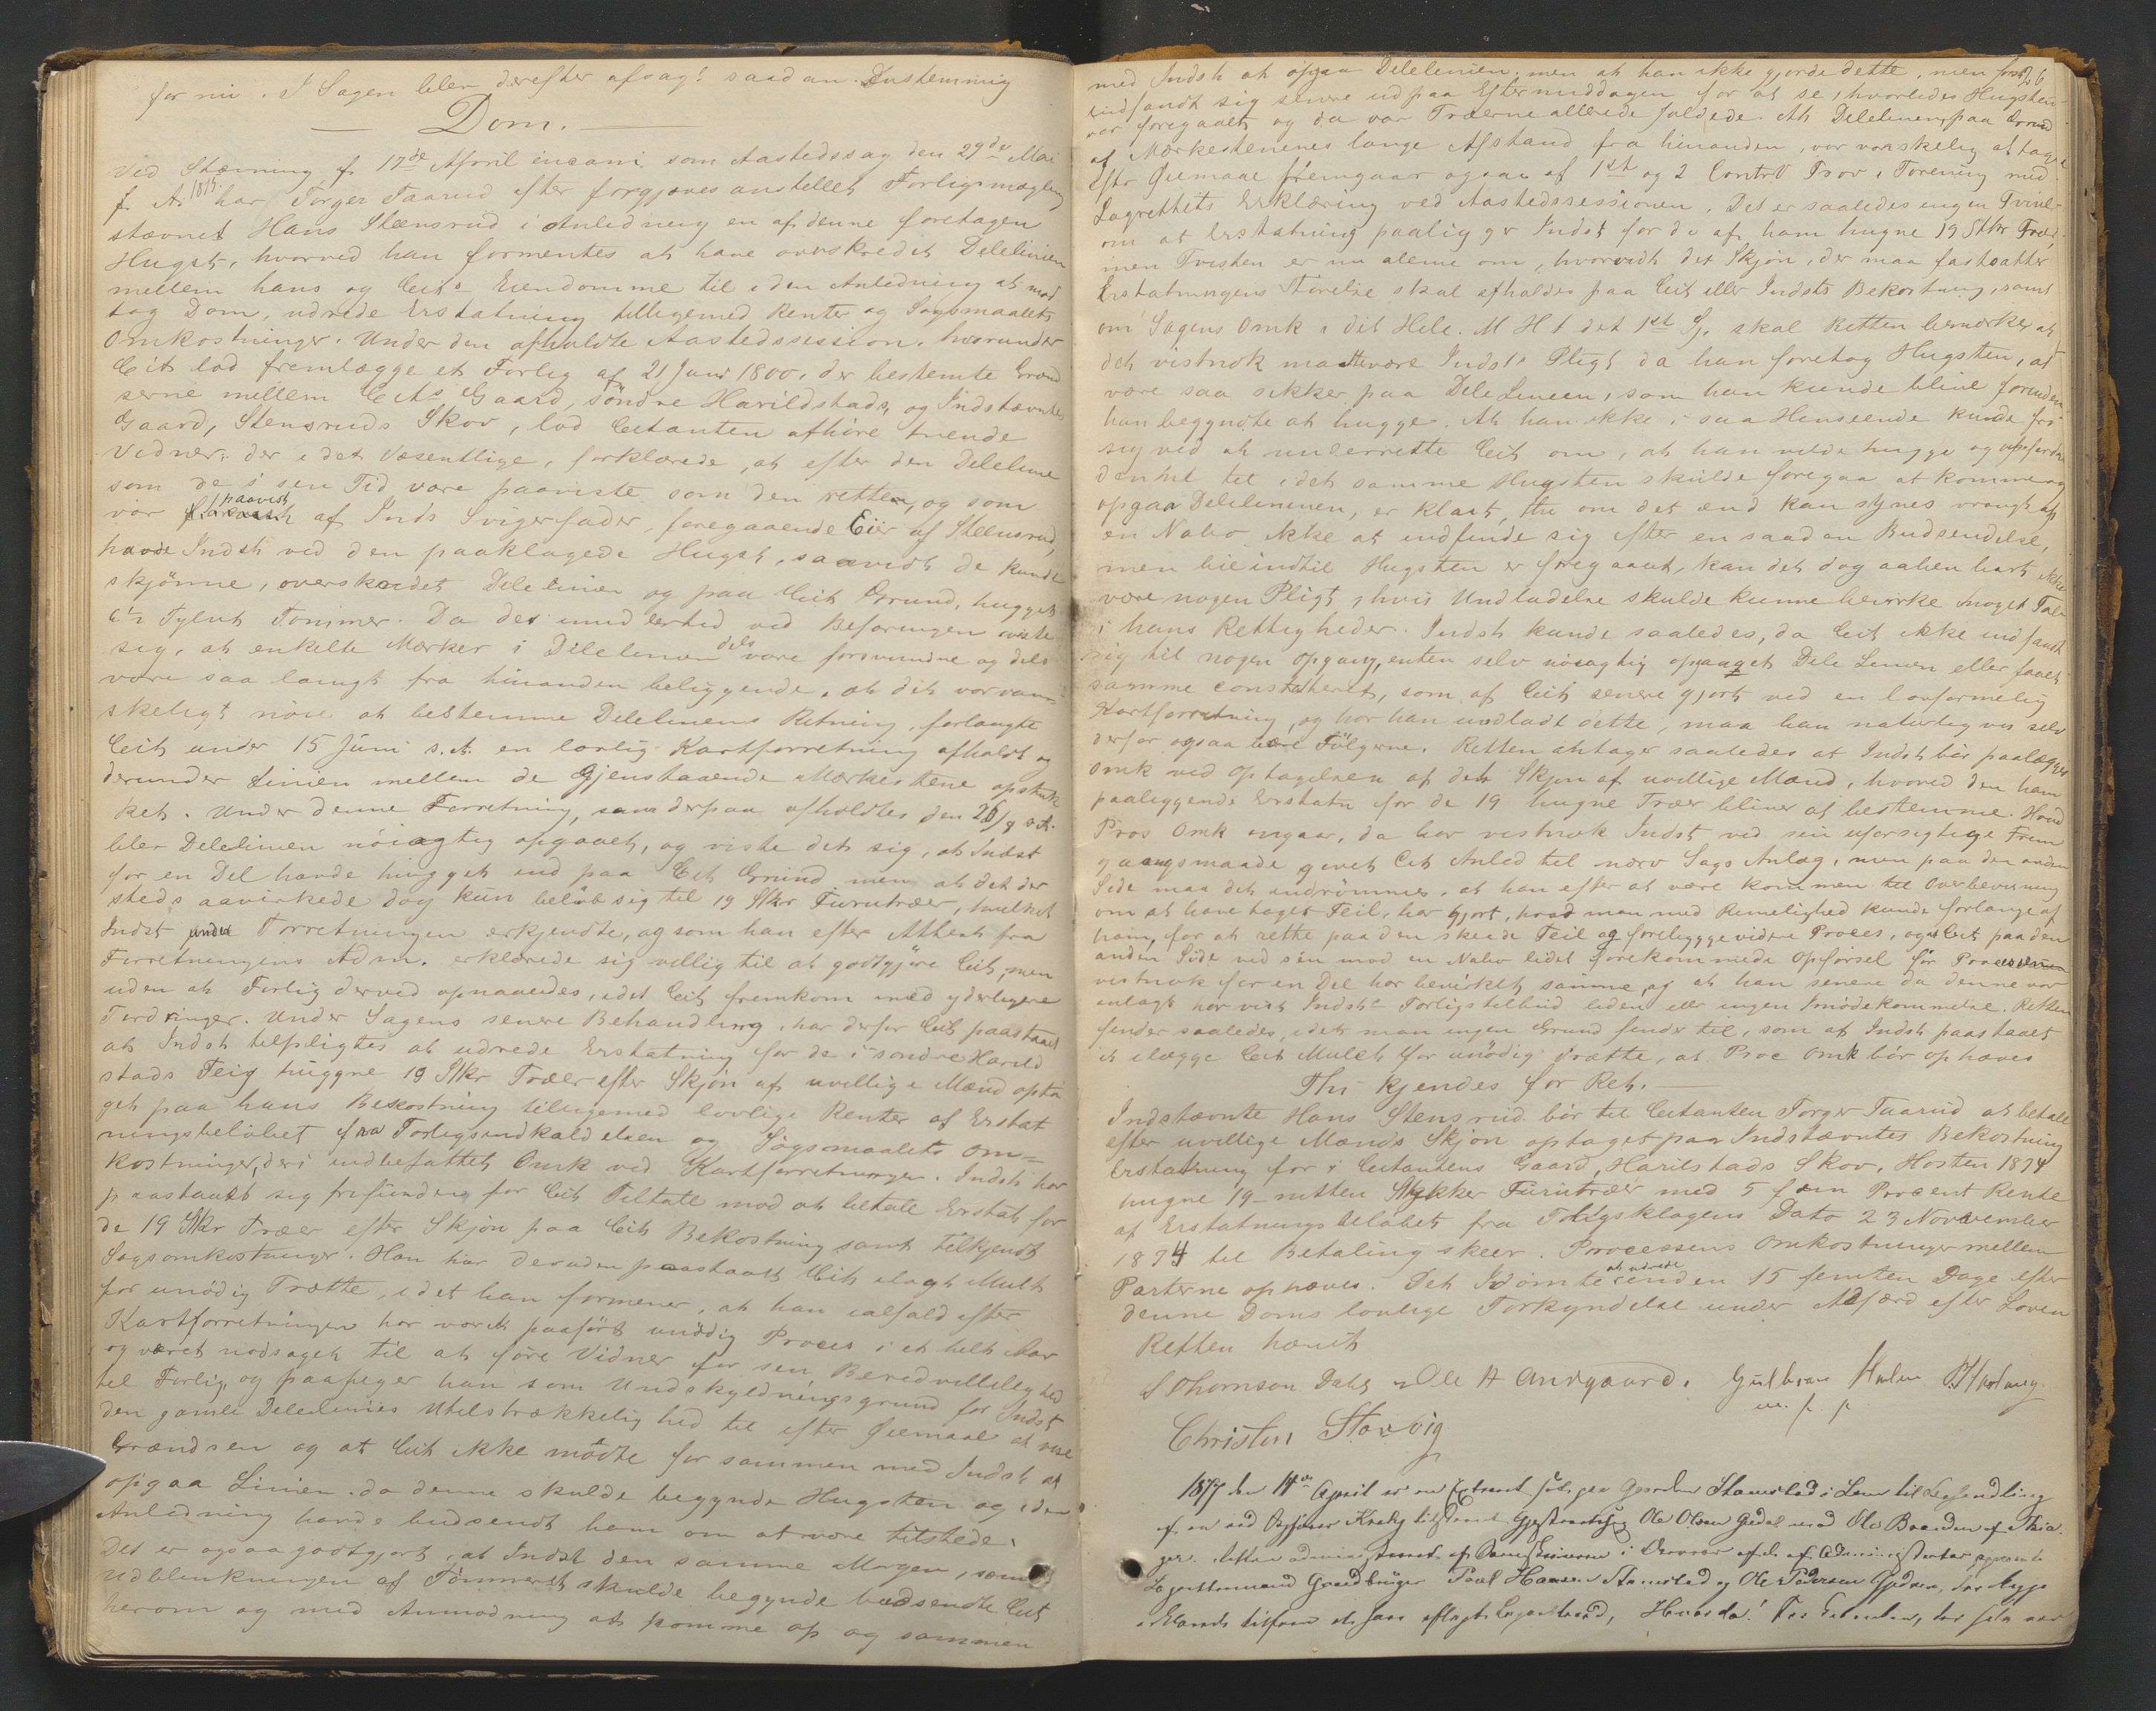 for mig. I Sagen blev derefter afsagt saadan Enstemmig
Dom.
Ved Stævning f. 17de April incam. som Aastedssag den 29de Mai
f. A. 1875. har Torger Taarud efter forgjæves anstillet Forligsmægling
stævnet Hans Steensrud i Anledning en af denne foretagen
Hugst, hvorved han formentes at have overskredet Delelinien
mellem hans og Cits Eiendomme til i den Anledning at mod
tag Dom, udrede Erstatning tilligemed Renter og Sagsmaalets
Omkostninger. Under den afholdte Aastedssession, hvorunder
Cit lod fremlægge et Forlig af 21 Juni 1800, der bestemte Grænd
serne mellem Cits Gaard, søndre Harildstads, og Indstævntes
Gaard, Stensruds Skov, lod Citanten afhøre tvende
Vidner, der i det Væsentlige, forklarede, at efter den Delelinie
som de i sin Tid vare paaviste som den rette, og som
var paavist af Inds Svigerfader, foregaaende Eier af Steensrud,
havde Indst ved den paaklagede Hugst, saavidt de kunde
skjønne, overskredet Delelinien og paa Cits Grund, hugget
6½ Tylvt Tømmer. Da det imidlertid ved Befaringen viste
sig, at enkelte Mærker i Delelinien dels vare forsvundne og dels
vare saa langt fra hinanden beliggende, at det var van-
skeligt nøie at bestemme Deleliniens Retning, forlangte
Cit under 15 Juni s. A. en lovlig Kartforretning afholdt og
derunder Linien mellem de Gjenstaaende Mærkestene opstuk
ket. Under denne Forretning, som derpaa afholdtes den 26/8 s. A.
blev Delelinien nøiagtig opgaaet, og viste det sig, at Indst
for en Del havde hugget ind paa Cits Grund men at det der
steds aavirkede dog kun beløb sig til 19 Stkr Furutræer, hvilket
Indst under Forretningen erkjendte, og som han efter Attest fra
Forretningens Adm. erklærede sig villig til at godtgjøre Cit, men
uden at Forlig derved opnaaedes, idet Cit fremkom med yderligere
Fordringer. Under Sagens senere Behandling, har derfor Cit paastaaet
at Indst tilpligtes at udrede Erstatning for de i søndre Harild
stads Teig huggne 19 Stkr Træer efter Skjøn af uvillige Mænd opta
get paa hans Bekostning tilligemed lovlige Renter af Erstat
ningsbeløbet fra Forligsindkaldelsen og Søgsmaalets Om-
kostninger, deri indbefattet Omk ved Kartforretningen. Indst har
paastaaet sig frifunden for Cits Tiltale mod at betale Erstat. for
de 19 Stkr Træer efter Skjøn paa Cits Bekostning samt tilkjendt
Sagsomkostninger. Han har derauden paastaaet Cit ilagt Mult
for unødig Trætte, idet han formener, at han ialfald efter
Kartforretningen har været paaført unødig Proces i et helt Aar
og været nødsaget til at føre Vidner for sin Beredvillighed
til Forlig, og paapeger han som Undskyldningsgrund for Indst
den gamle Delelinies Utilstrækkelighed til efter Øiemaal at vise
Grændsen og at Cit ikke mødte for sammen med Indst at
opgaa Linien, da denne skulde begynde Hugsten og i den
Anledning havde budsendt ham om at være tilstede.
Det er ogsaa godtgjort, at Indst den samme Morgen, som
Udblinkningen af Tømmeret skulde begynde budsendte Cit
herom og med Anmodning at komme op og sammen
26
med Indst at opgaa Delelinien, men at han ikke gjorde dette, men først
indfandt sig senere ud paa Eftermiddagen for at se, hvorledes Hugsten
var foregaaet, og da var Træerne allerede faldede. At Delelinien, paa Grund
af Mærkestenenes lange Afstand fra hinanden, var vanskelig at tage
efter Øiemaal fremgaar ogsaa af 1st og 2 Contra Prov. i Forening med
Lagrettets Erklæring ved Aastedssessionen. Det er saaledes ingen Tvivl
om at Erstatning paaligger Indst for de af ham hugne 19 Stkr Træer,
men Tvisten er nu alene om, hvorvidt det Skjøn, der maa fastsætte
Erstatningens Størelse skal afholdes paa Cits eller Indsts Bekostning, samt
om Sagens Omk i det Hele. M H t det 1st Sp. skal Retten bemærke at
det vistnok maatte være Indsts Pligt da han foretog Hugsten, at
være saa sikker paa DeleLinien, som han kunde blive forinden
han begyndte at hugge. At han ikke i saa Henseende kunde fri
sig ved at underrette Cit om, at han vilde hugge og opfordre
denne til i det samme Hugsten skulde foregaa at komme og
opgaa Delelinien, er klart, thi om det end kan synes vrangt af
en Nabo ikke at indfinde sig efter en saadan Budsendelse,
men bie indtil Hugsten er foregaaet, kan det dog aabenbart ikke
være nogen Pligt, hvis Undladelse skulde kunne bevirke noget Tab
i hans Rettigheder. Indst kunde saaledes, da Cit ikke indfandt
sig til nogen opgang, enten selv nøiagtig opgaaet Dele Linien eller faaet
samme constateret, som af Cit senere gjort ved en lovformelig
Kartforretning, og har han undladt dette, maa han naturligvis selv
derfor ogsaa bære Følgerne. Retten antager saaledes at Indst bør paalægges
Omk ved optagelsen af det Skjøn af uvillige Mænd, hvorved den ham
paaliggende Erstatn for de 19 hugne Træer bliver at bestemme. Hvad
Proc Omk angaar, da har vistnok Indst ved sin uforsigtige Frem
gaangsmaade givet Cit Anled til nærv Sags Anlæg, men paa den anden
Side maa det indrømmes, at han efter at være kommen til Overbevisning
om at have taget Feil, har gjort, hvad man med Rimelighed kunde forlange af
ham, for at rette paa den skeede Feil og forebygge videre Proces, og at Cit paa den
anden Side ved sin mod en Nabo lidet forekommende opførsel før Processen
vistnok for en Del har bevirket samme, og at han senere da denne var
anlagt har vist Indsts Forligstilbud liden eller ingen Imødekommelse. Retten
finder saaledes, idet man ingen Grund finder til, som af Indst paastaaet
at ilægge Cit Mulct for unødig Trætte, at Proc Omk bør ophæves
Thi kjendes for Ret.
Indstævnte Hans Stensrud bør til Citanten Torger Taarud at betale
efter uvillige Mænds Skjøn optaget paa Indstævntes Bekostning
Erstatning for i Citantens Gaard, Harilstads Skov, Høsten 1874
hugne 19 nitten Stykker Furutræer med 5 fem Procent Rente
af Erstatningsbeløbet fra Forligsklagens Dato 23 November
1874 til Betaling skeer. Processens Omkostninger mellem
Parterne ophæves. Det Idømte at udrede inden 15 femten Dage efter
denne Doms lovlige Forkyndelse under Adfærd efter Loven
Retten hævet
S Thomson Dahl Ole H Andgaard. Gulbran Holm
m. f. p.
Christen Storvig
1877 den 14de April